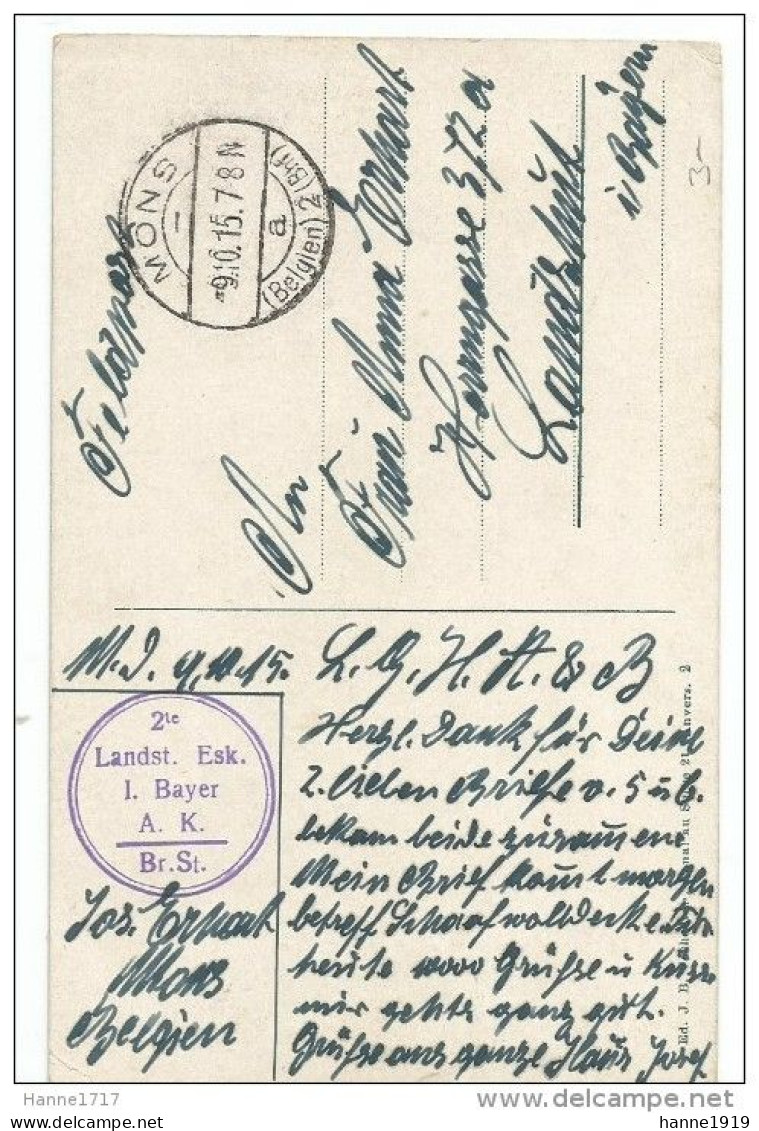 Feldpost
MONS
9.10.15.7 8 N
a
(Belgien) 2 (Bhf)
An
Frau Anna Erhart
Herrngasse 372 a
Landshut
i/Bayern
3-
M. d. 9.10.15.
2te
Landst. Esk.
I. Bayer
A. K.
Br.St.
Jos. Erhart
Mons
Belgien
L. G. H. A. & B
Herzl. Dank für Deine
2. lieben Briefe v. 5 u 6.
bekam beide zusammen
Mein Brief komt morgen
betreff Schaafwolldecke.
heute 1000 Grüsse u Küsse
mir gehts ganz gut.
Grüsse ans ganze Haus Josef
Ed. J. B. 21 Anvers. 2
Hanne1717
delcampe.net
hanne1919